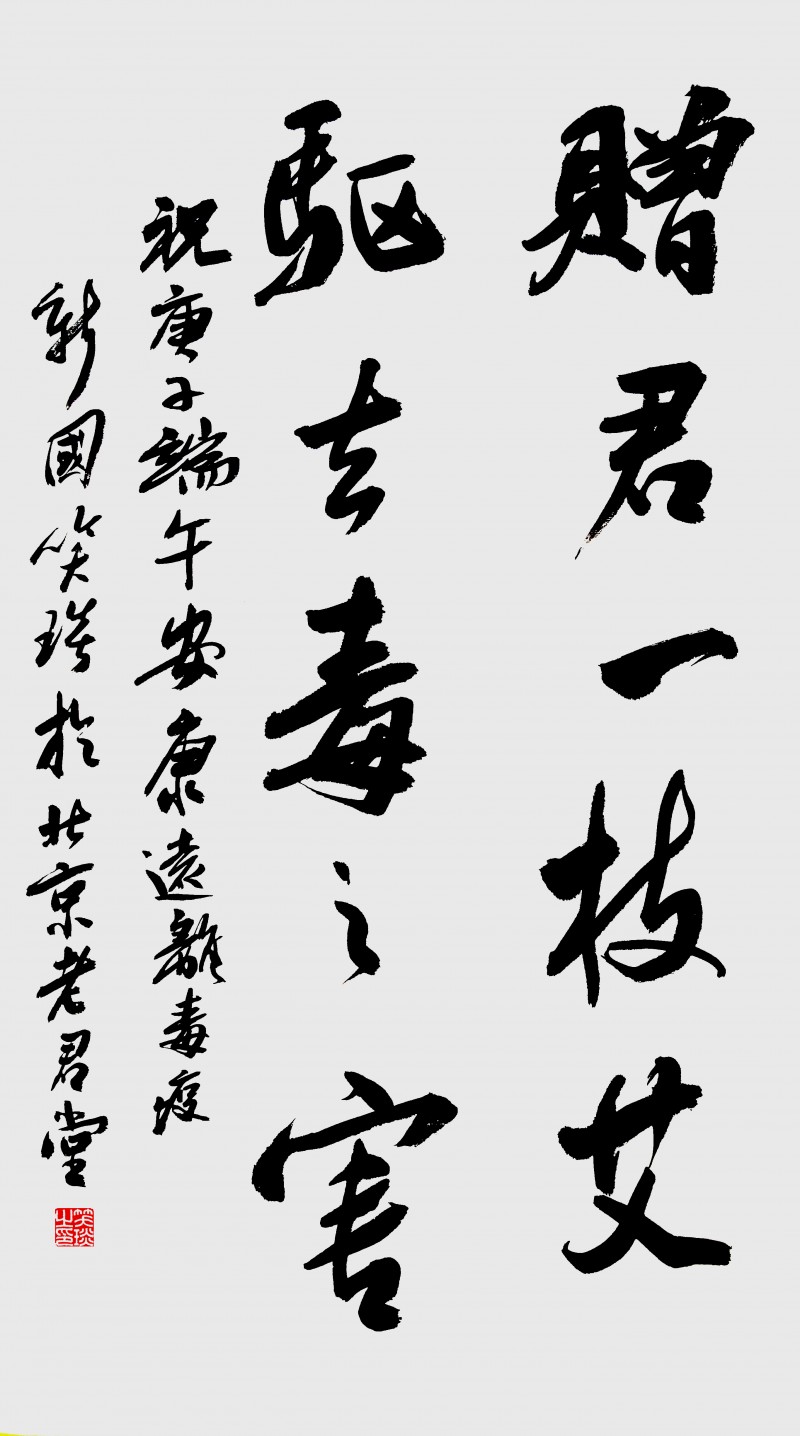 贈君一枝艾
駆去毒之害
祝庚子端午安康遠離毒疫
新國笑琰於北京老君堂
笑琰之印